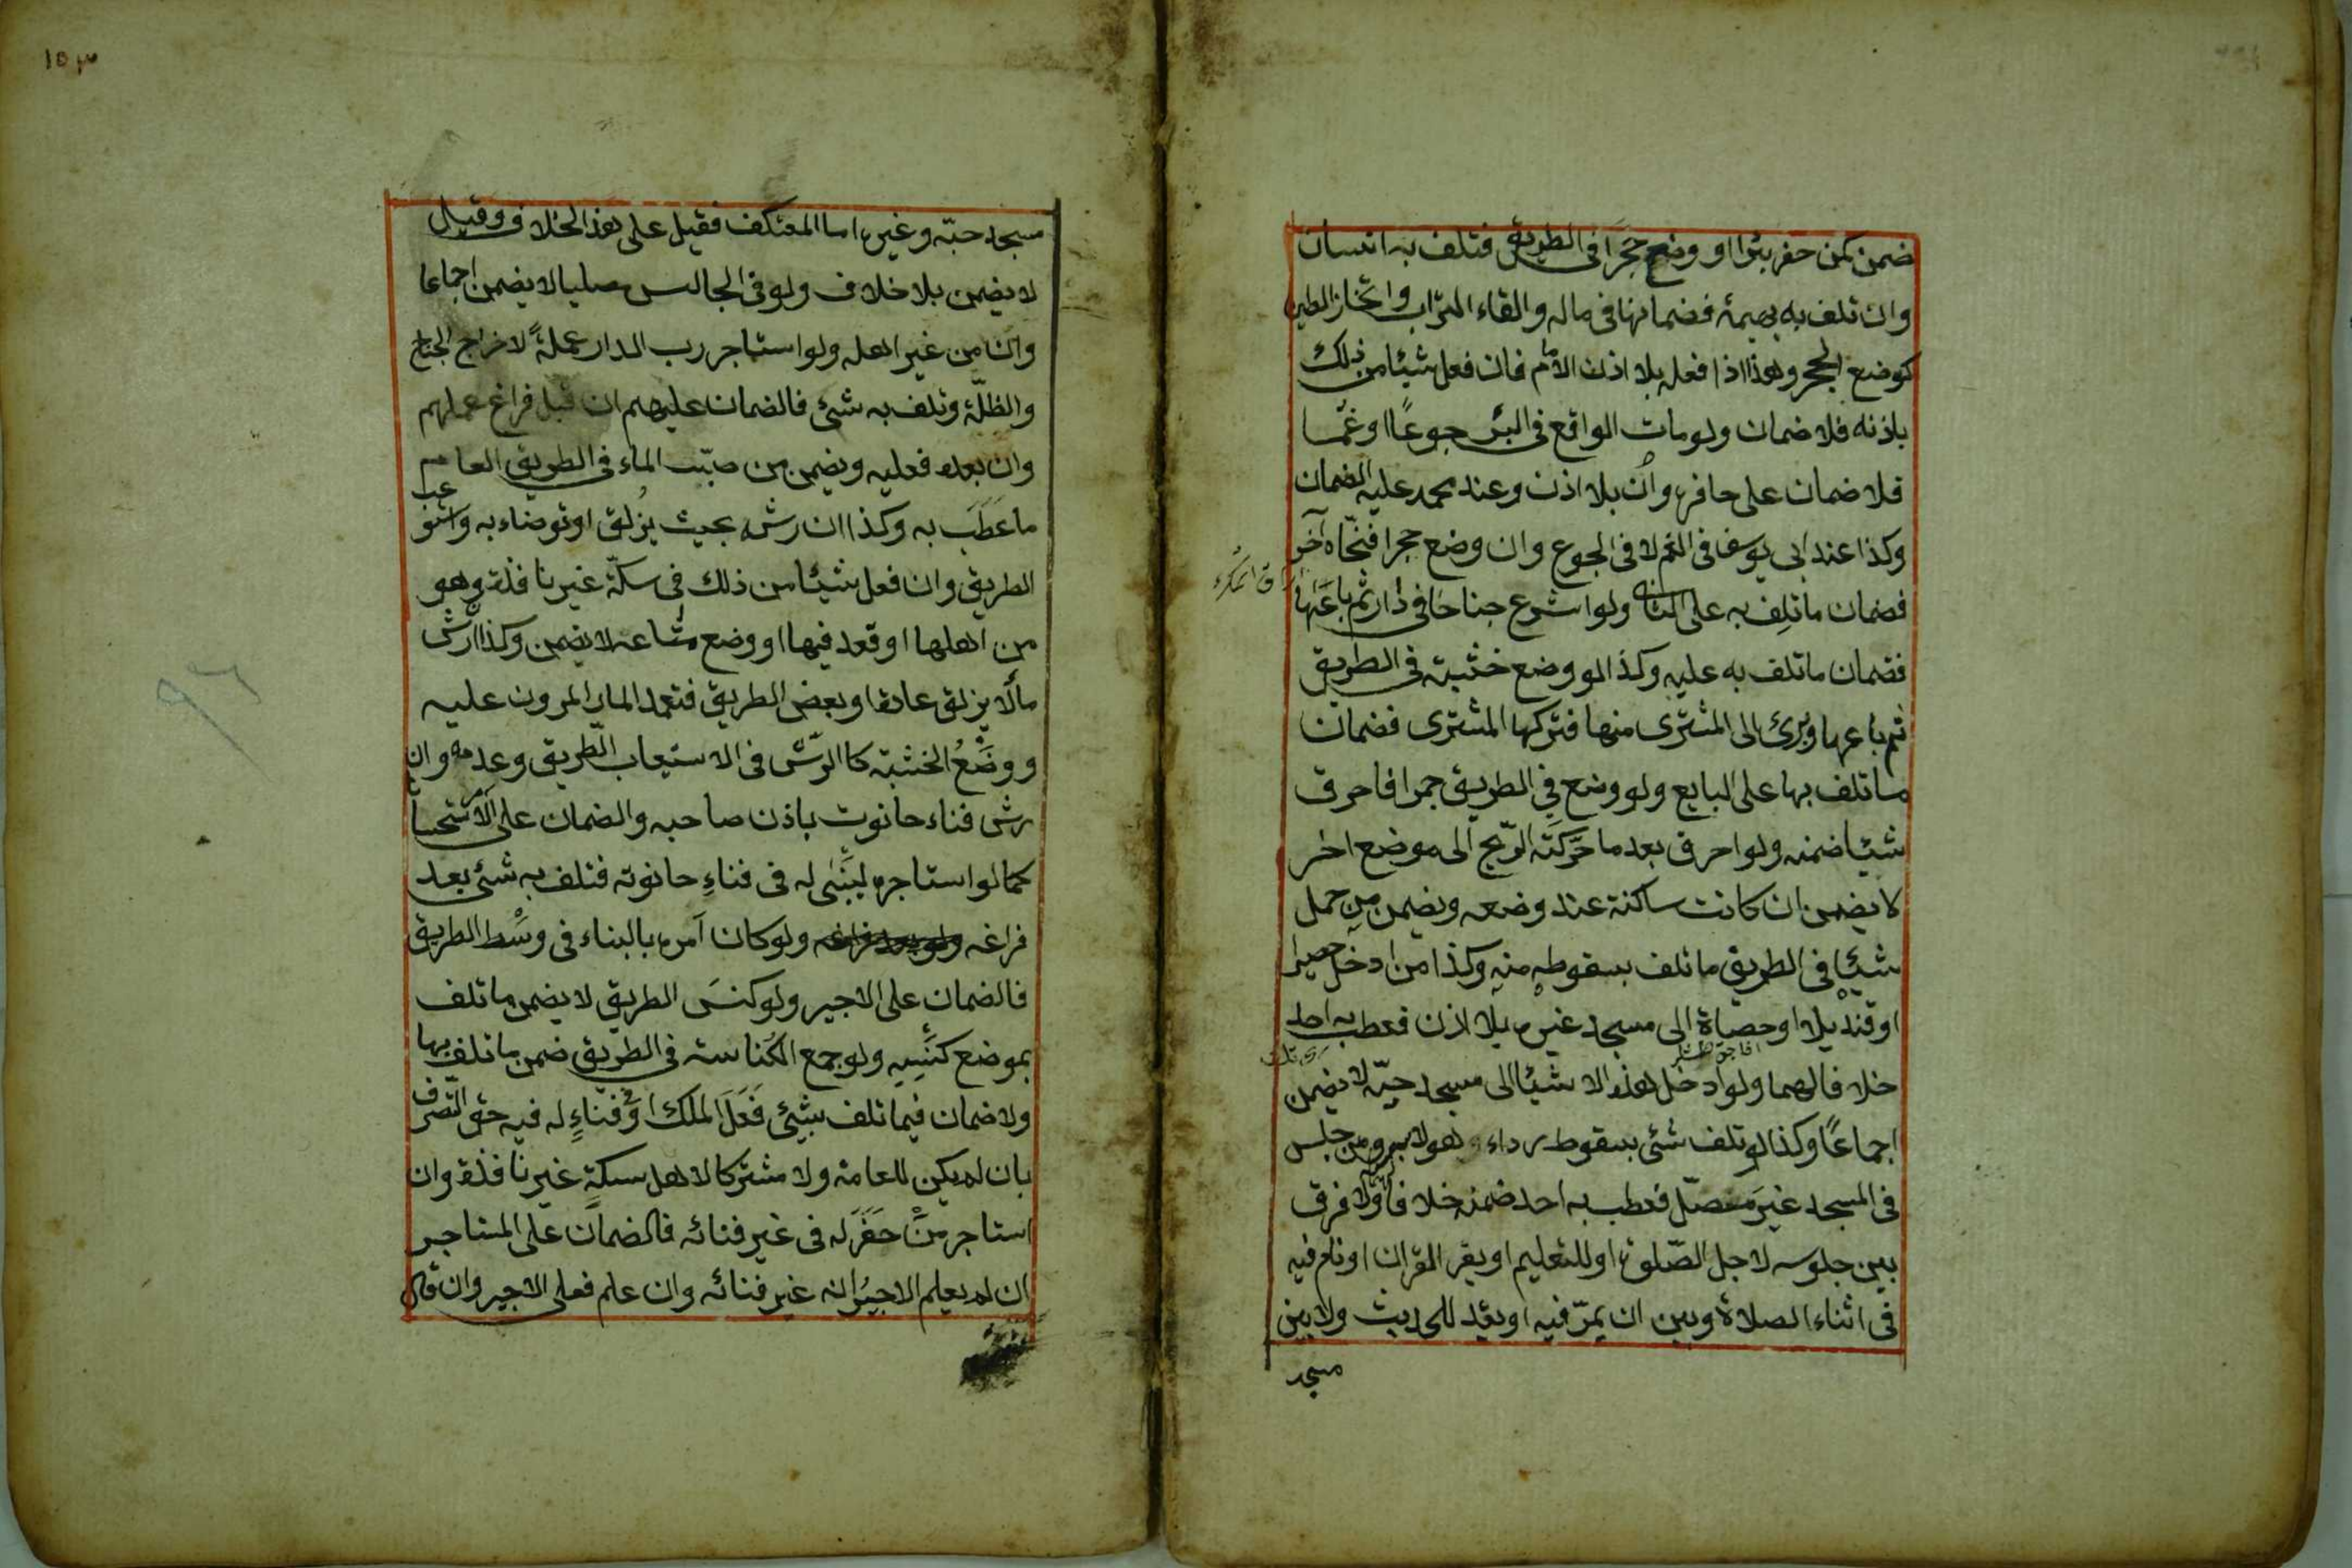 ضمن كمن حفر بئرا او وضع حجرا فى الطريق فتلف به انسان
وان تلف به بهيمة فضمانها فى ماله والقاء التراب واتخاذ الطين
كوضع الحجر وهذا اذا فعله بلا اذن الامام فان فعل شيئا من ذلك
باذنه فلا ضمان ولو مات الواقع فى البئر جوعًا او غمّا
فلا ضمان على حافره وان بلا اذن وعند محمد عليه الضمان
وكذا عند ابى يوسف فى الغم لا فى الجوع وان وضع حجرا فنحّاه آخر
فضمان ما تلف به على الثانى ولو اشرع جناحًا فى دار ثم باعها
فضمان ما تلف به عليه وكذا لو وضع خشبة فى الطريق
ثم باعها وبرئ الى المشترى منها فتركها المشترى فضمان
ما تلف بها على البايع ولو وضع فى الطريق جمرا فاحرق
شيئا ضمنه ولو احرق بعد ما حرّكته الرّيح الى موضع اخر
لا يضمن ان كانت ساكنة عند وضعه ويضمن من حمل
شيئا فى الطريق ما تلف بسقوطه منه وكذا من ادخل حصيرا
او قنديلا او حصاة الى مسجد غيره بلا اذن فعطب به احد
خلافا لهما ولو ادخل هذه الاشيا الى مسجد حيّه لا يضمن
اجماعًا وكذا لو تلف شئ بسقوط رداء وهو لابسه ومن جلس
فى المسجد غيرَ مصلّ فعطب به احد ضمنه خلافا ولا فرق
بين جلوسه لاجل الصّلوة او للتعليم او يقر القران او نام فيه
فى اثناء الصلاة وبين ان يمرّ فيه او يقعد للحديث ولا بين
مسجد
١٥٣
مسجد حيّه وغيره اما المعتكف فقيل على هذا الخلاف وقيل
لا يضمن بلا خلاف ولو فى الجالس مصليا لا يضمن اجماعا
وان من غير اهله ولو استاجر رب الدار عملةً لاخراج الجناح
والظلّة وتلف به شئ فالضمان عليهم ان قبل فراغ عملهم
وان بعده فعليه ويضمن من صبّ الماء فى الطريق العام
ما عَطَبَ به وكذا ان رش بحيث يزلق او توضاء به واستوعب
الطريق وان فعل شيئا من ذلك فى سكّة غير نافذة وهو
من اهلها او قعد فيها او وضع متاعه لا يضمن وكذا ان رشّ
مألا يزلق عادة او بعض الطريق فتعمد المار المرور عليه
ووضْعُ الخشبة كا الرّش فى الاستيعاب الطّريق وعدمه وان
رش فناء حانوت باذن صاحبه والضمان على الآمر استحسا
كما لو استاجره ليبنى له فى فناءِ حانوته فتلف به شئ بعد
فراغه ولو كان آمره بالبناء فى وسْط الطريق
فالضمان على الاجير ولو كنسَ الطريق لا يضمن ما تلف
بموضع كنسه ولو جمع الكُناسة فى الطريق ضمن ما تلف بها
ولا ضمان فيما تلف بشئ فَعَلَ الملك او فى فنَاءٍ له فيه حق التّصرف
بان لم يكن للعامة ولا مشتركا لاهل سكةٍ غير نافذة وان
استاجر منْ حفَرَ له فى غير فنائه فالضمان على المستاجر
ان لم يعلم الاجيرُ انه غير فنائه وان علم فعلى الاجير وان قال